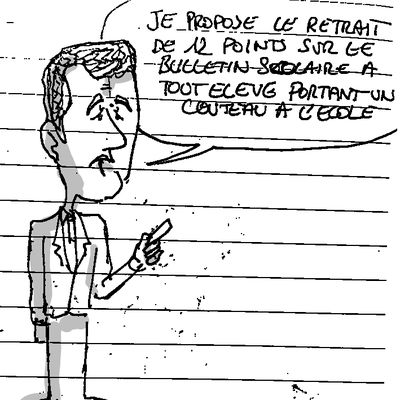 JE PROPOSE LE RETRAIT
DE 12 POINTS SUR LE
BULLETIN SCOLAIRE A
TOUT ELEVE PORTANT UN
COUTEAU A L'ECOLE